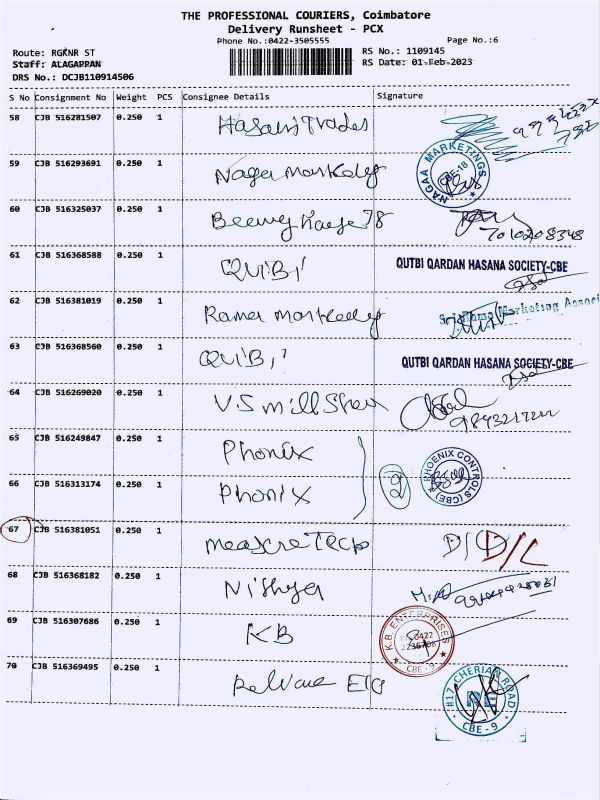 THE PROFESSIONAL COURIERS, Coimbatore
Delivery Runsheet - PCX
Phone No.:0422-3505555 Page No.:6
Route: RGKNR ST RS No.: 1109145
Staff: ALAGAPPAN RS Date: 01-Feb-2023
DRS No.: DCJB110914506
S No Consignment No Weight PCS Consignee Details Signature
58 CJB 516281507 0.250 1 Hasani Trades
59 CJB 516293691 0.250 1 Naga NAGAA MARKETINGS CBE-18
60 CJB 516325037 0.250 1 7010208348
61 CJB 516368588 0.250 1 QUIBI QUTBI QARDAN HASANA SOCIETY-CBE
62 CJB 516381019 0.250 1 Rama Sri Rama Marketing Associ
63 CJB 516368560 0.250 1 QUIBI QUTBI QARDAN HASANA SOCIETY-CBE
64 CJB 516269020 0.250 1 V.S mill Store
65 CJB 516249847 0.250 1 Phonix
66 CJB 516313174 0.250 1 Phonix 2 PHOENIX CONTROLS (CBE)
67 CJB 516381051 0.250 1 D/L
68 CJB 516368182 0.250 1 Nithya
69 CJB 516307686 0.250 1 KB K.B. ENTERPRISES CBE-9
70 CJB 516369495 0.250 1 #17, CHERIAN ROAD CBE - 9